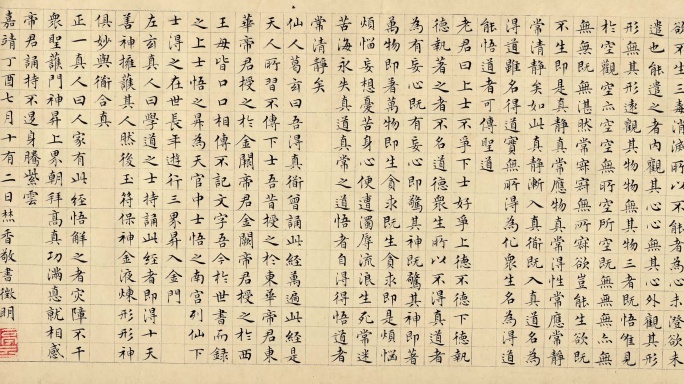 欲不生三毒消滅所以不能者為心未澄欲未
遣也能遣之者內觀其心心無其心外觀其形
形無其形遠觀其物物無其物三者既悟惟見
於空觀空亦空空無所空所空既無無無亦
無無無既無湛然常寂寂無所寂欲豈能生欲既
不生即是真靜真常應物真常得性常應常靜
常清靜矣如此真靜漸入真衜既入真道名為
得道雖名得道實無所得為化衆生名為得道
能悟道者可傳聖道
老君曰上士不爭下士好爭上德不德下德執
德執著之者不名道德衆生所以不得真道者
為有妄心既有妄心即驚其神既驚其神即著
萬物即著萬物即生貪求既生貪求即是煩惱
煩惱妄想憂苦身心便遭濁辱流浪生死常迷
苦海永失真道真常之道悟者自得得悟道者
常清靜矣
仙人葛玄曰吾得真衜曾誦此經萬遍此經是
天人所習不傳下士吾昔授之於東華帝君東
華帝君授之於金闕帝君金闕帝君授之於西
王母皆口口相傳不記文字吾今於世書而録
之上士悟之昇為天官中士悟之南宮列仙下
士得之在世長年遊行三界昇入金門
左玄真人曰學道之士持誦此經者即得十天
善神擁護其人然後玉符保神金液煉形形神
俱妙與衜合真
正一真人曰人家有此經悟解之者灾障不干
衆聖護門神昇上界朝拜高真功滿悳就相感
帝君誦持不退身騰紫雲
嘉靖丁酉七月十有二日焚香敬書徵明